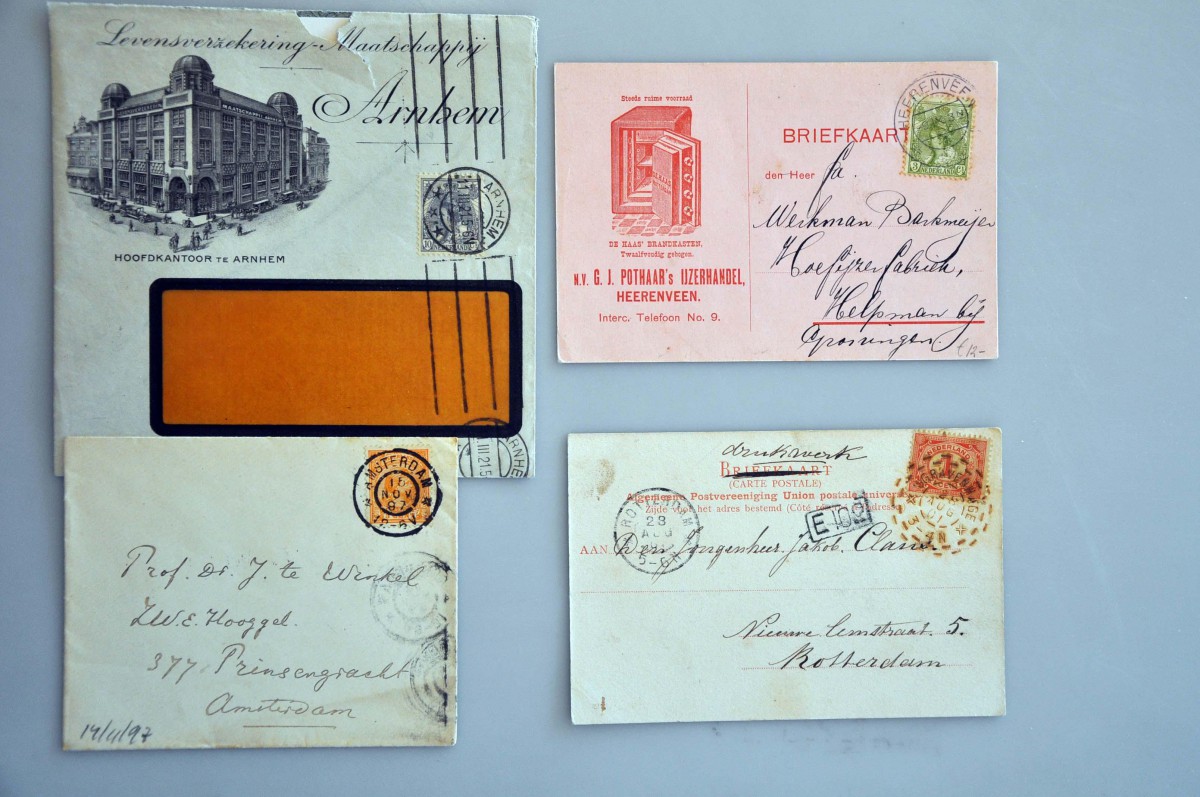 Levensverzekering-Maatschappij
Arnhem
MAATSCHAPPIJ ARNHEM
HOOFDKANTOOR TE ARNHEM
ARNHEM
ARNHEM
III 21.5
Steeds ruime voorraad
DE HAAS' BRANDKASTEN,
Twaalfvoudig gebogen.
N.V. G. J. POTHAAR's IJZERHANDEL,
HEERENVEEN.
Interc. Telefoon No. 9.
HEERENVEEN
BRIEFKAART
NEDERLAND
den Heer Fa.
Werkman Barkmeijer
Hoefijzerfabriek,
Helpman bij
Groningen.
f 12-
AMSTERDAM
15
NOV
97
Prof. Dr. J. te Winkel
Z.W.E. Hooggel.
377 Prinsengracht
Amsterdam
14/11/97
drukwerk
BRIEFKAART
(CARTE POSTALE)
Algemeene Postvereeniging Union postale univers
Zijde voor het adres bestemd (Côté
NEDERLAND
1
AUG
01
7N
ROTTERDAM
23
AUG
AAN Den Jongenheer Jakob. Claus
Nieuwe Eemstraat. 5.
Rotterdam